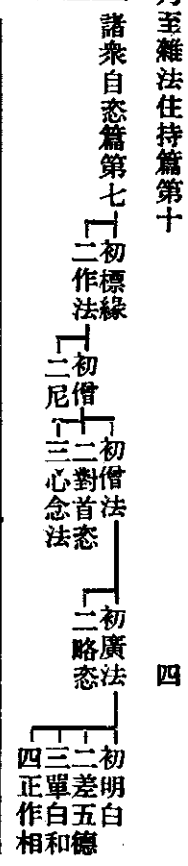 至雜法住持篇第十
四
諸衆自恣篇第七
初標緣
二作法
初僧
二尼
初僧法
二對首恣
三心念法
初廣法
二略恣
初明白
二差五德
三單白和
四正作相